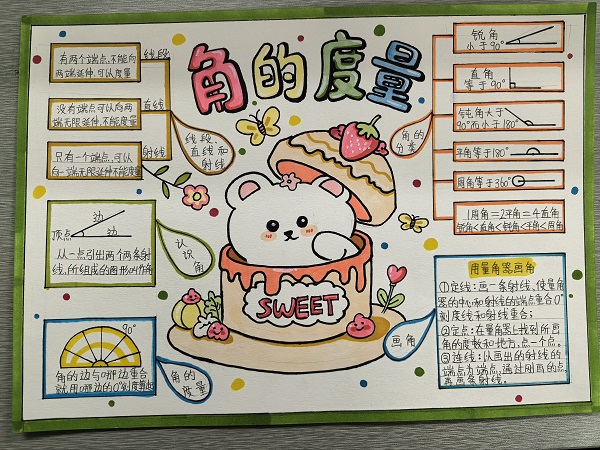 角的度量
有两个端点，不能向
两端延伸，可以度量
线段
没有端点可以向两
端无限延伸，不能度量
直线
只有一个端点，可以
向一端无限延伸不能度量
射线
线段、
直线和
射线
锐角
小于90°
直角
等于90°
钝角大于
90°而小于180°
平角等于180°
周角等于360°
1周角=2平角=4直角
锐角<直角<钝角<平角<周角
角的
分类
边
顶点
边
从一点引出两个两条射
线，所组成的图形叫作角
认
识
角
SWEET
90°
角的边与哪边重合
就用哪边的0°刻度算起
角的
度量
画角
用量角器画角
①定线：画一条射线，使量角
器的中心和射线的端点重合0°
刻度线和射线重合；
②定点：在量角器上找到所画
角的度数的地方，点一个点。
③连线：以画出的射线的
端点为端点，通过刚画的点，
再画条射线。